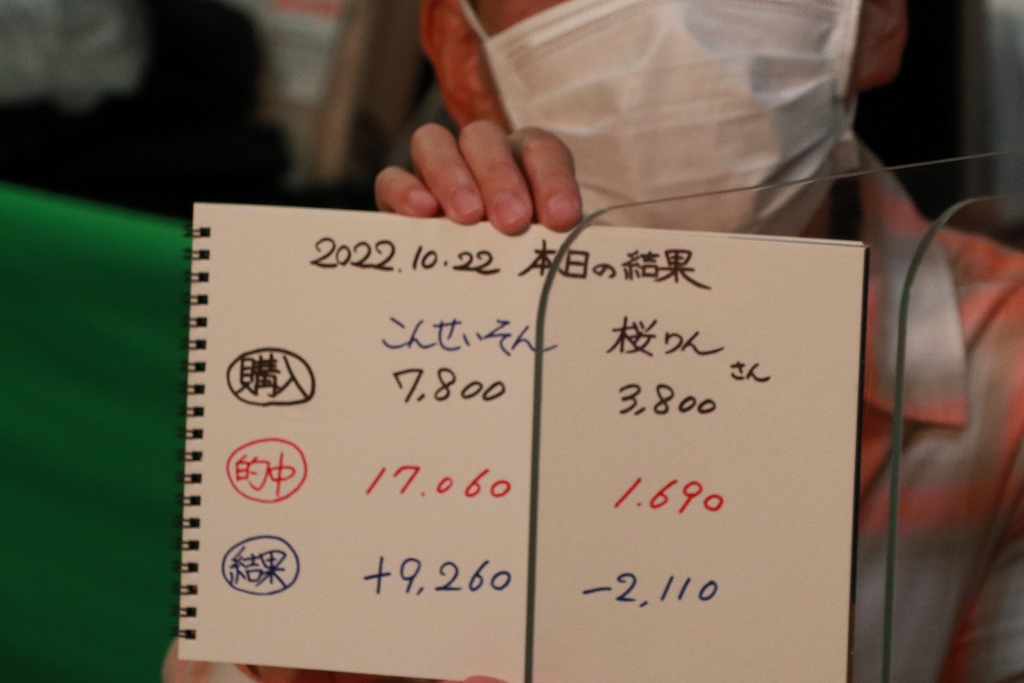 2022.10.22 本日の結果
こんせいそん 桜りんさん
購入 7,800 3,800
的中 17.060 1.690
結果 +9,260 -2,110